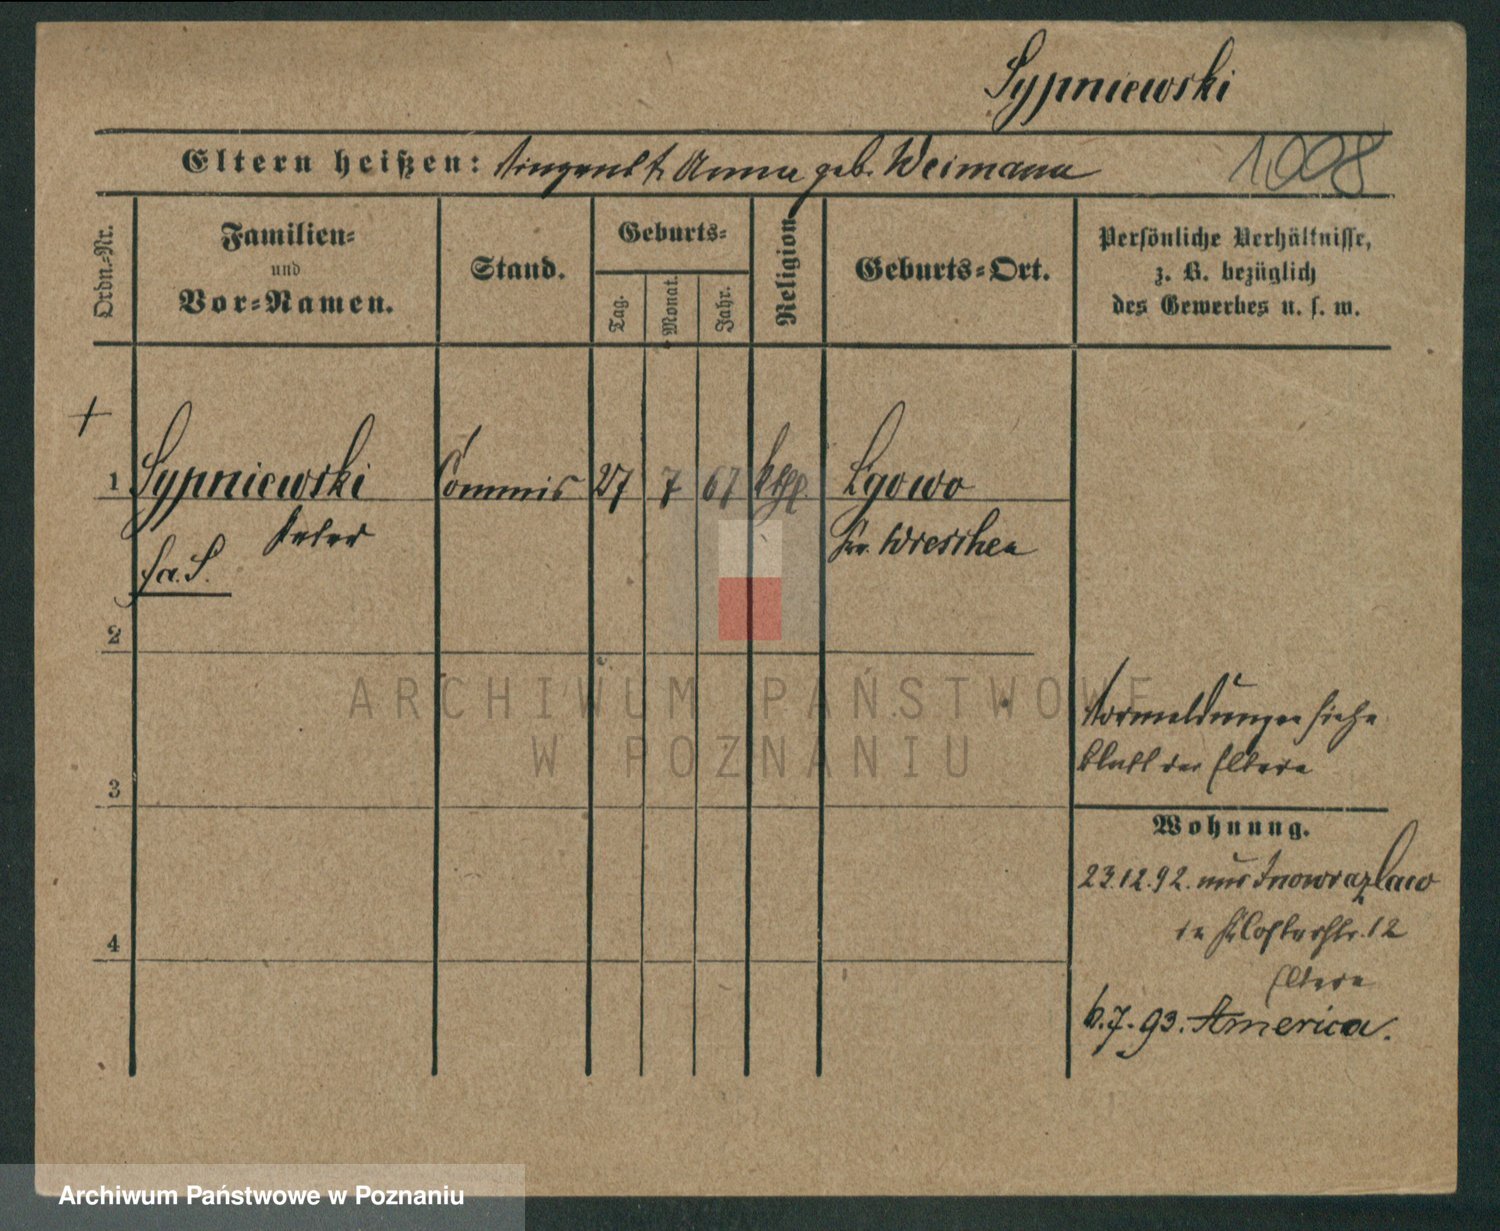 Sypniewski
Eltern heißen: Vinzent & Anna geb. Weimann
1008
Ordn.-Nr.
Familien-
und
Vor-Namen.
Stand.
Geburts-
Tag.
Monat.
Jahr.
Religion
Geburts-Ort.
Persönliche Verhältnisse,
z. B. bezüglich
des Gewerbes u. s. w.
1 Sypniewski Commis 27 7 67 kath. Lgowo
Peter Kr. Wreschen
2
3
4
Vormeldungen siehe
Blatt der Eltern
Wohnung.
23.12.92. aus Inowrazlaw
in Klosterstr. 12
Eltern
6.7.93. America.
ARCHIWUM PAŃSTWOWE
W POZNANIU
Archiwum Państwowe w Poznaniu